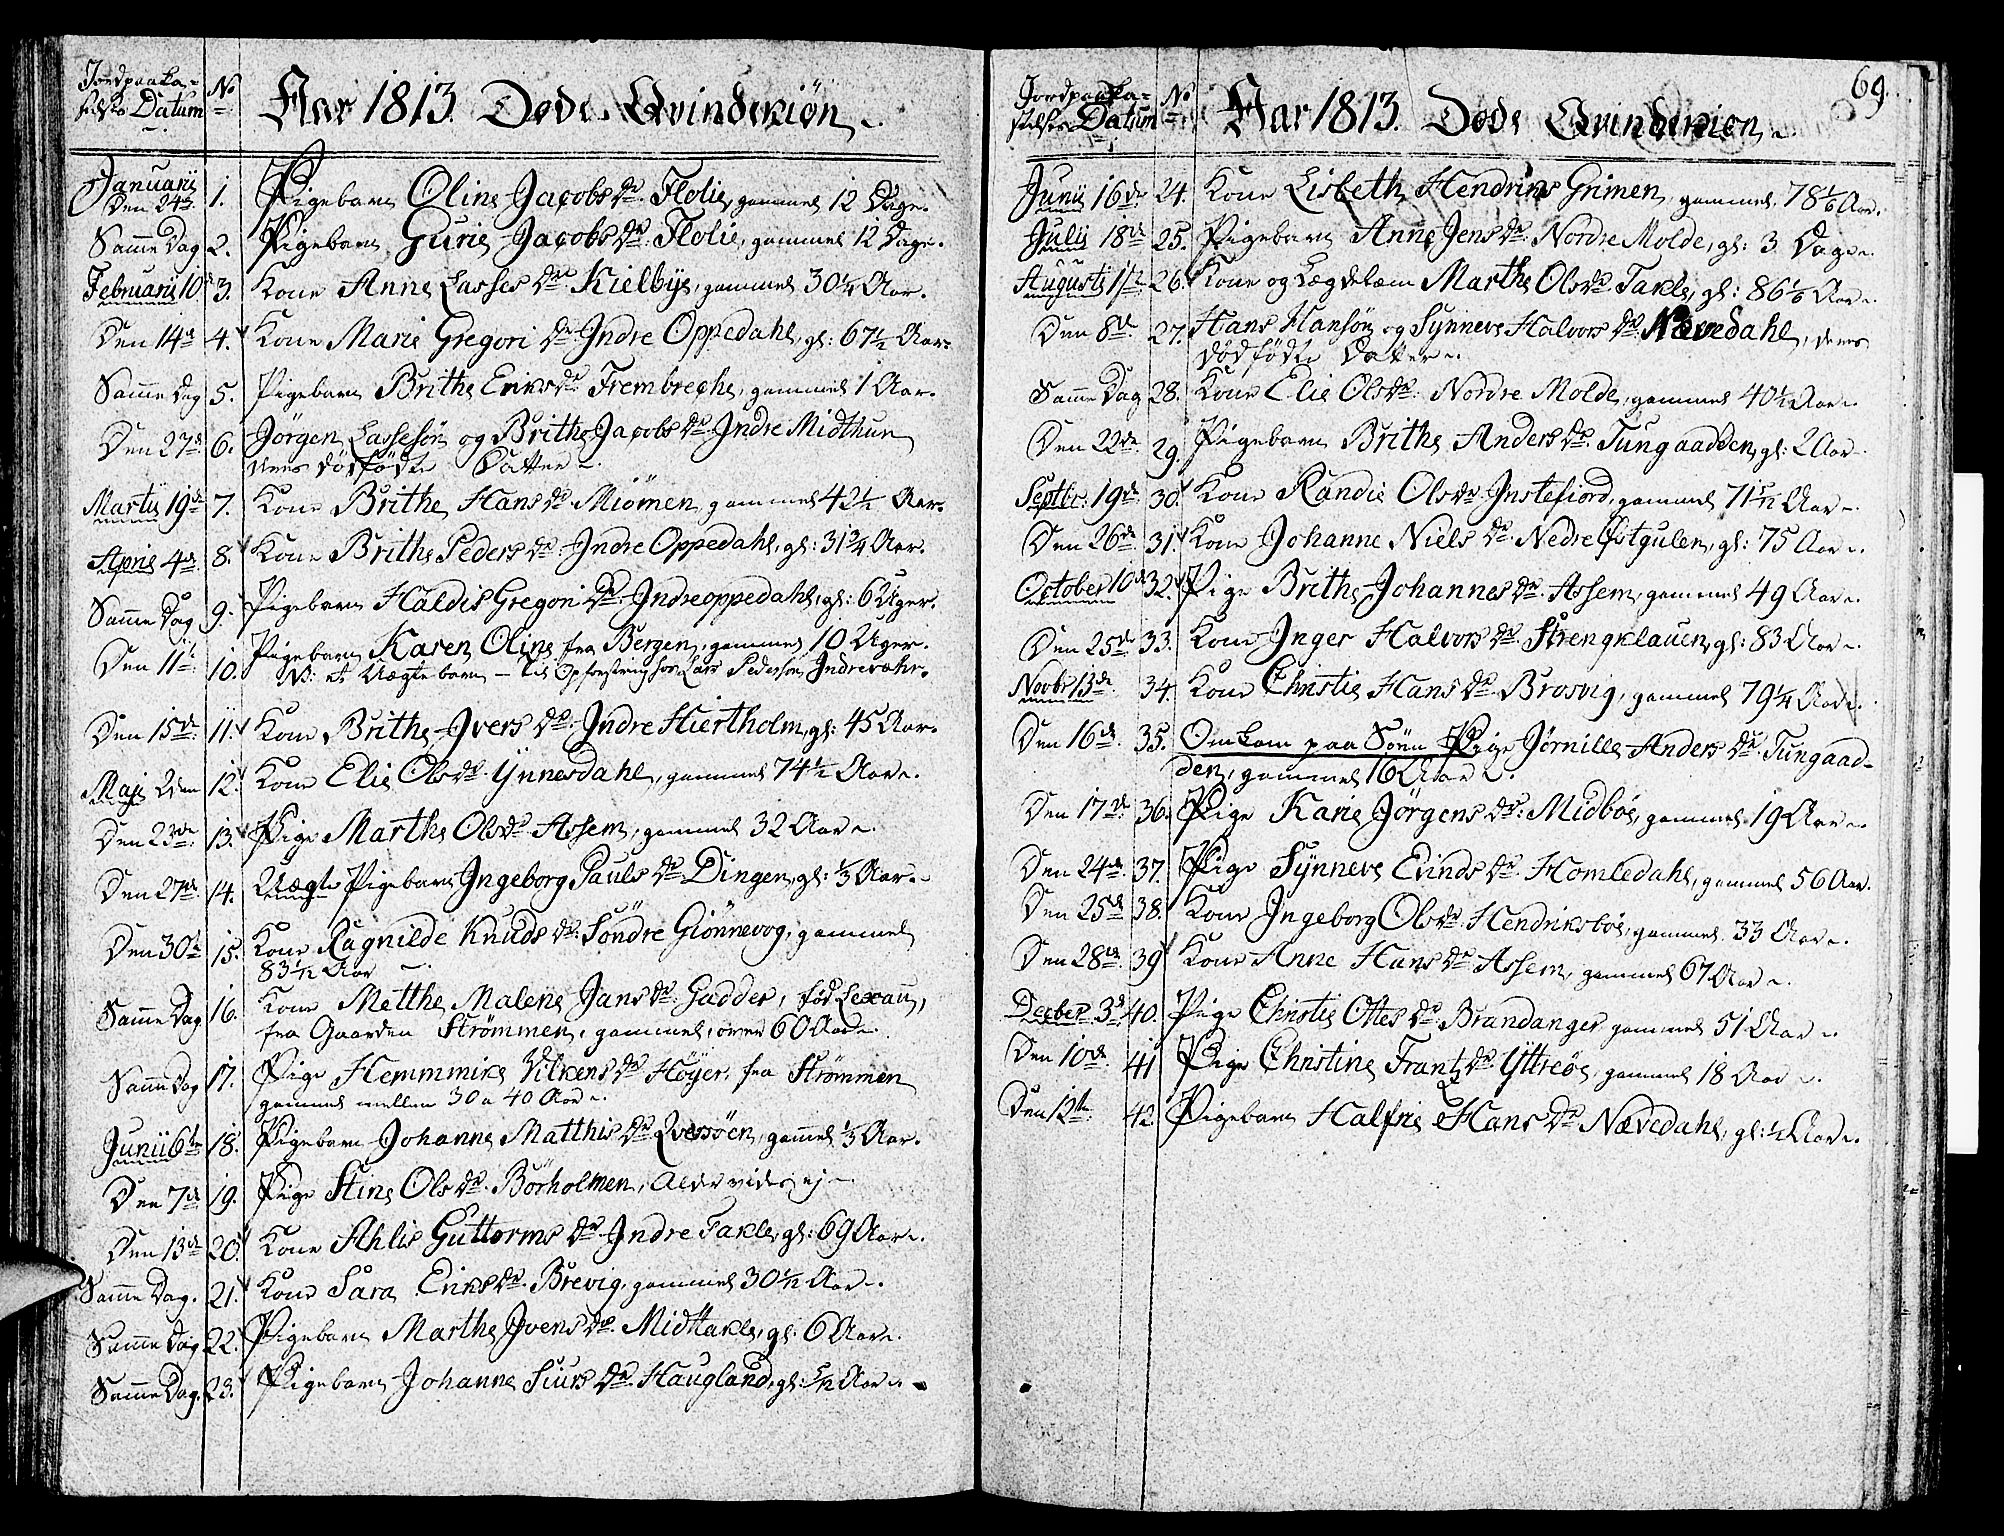 Jordpaaka-
stelses Datum No Aar 1813. Døde Qvindekiön
Januarii
Den 24de 1. Pigebarn Oline Jacobs Dr Flolie, gammel 12 Dage.
Samme Dag 2. Pigebarn Gurie Jacobs Dr. Flolie, gammel 12 Dage.
Februarii 10d 3. Kone Anne Lasses Dr Kielbye, gammel 30 1/4 Aar.
Den 14de 4. Kone Marie Gregori Dr Indre Oppedahl, gl: 67 1/2 Aar.
Samme Dag 5. Pigebarn Brithe Eriks Dr Trembreche, gammel 1 Aar.
Den 27de 6. Jörgen Lassesön og Brithe Jacobs Dr Indre Midthun
deres dödfödte Datter
Martii 19de 7. Kone Brithe Hans Dr Miömen, gammel 42 1/2 Aar.
April 4de 8. Kone Brithe Peders Dr Indre Oppedahl, gl: 31 3/4 Aar.
Samme Dag 9. Pigebarn Haldis Gregori Dr Indreoppedahl, gl: 6 Uger.
Den 11te 10. Pigebarn Karen Oline fra Bergen, gammel 10 Uger.
NB: et Uægte barn – til Opfostring hos Lars Pedersen Indrevahr.
Den 15de 11. Kone Brithe Ivers Dr. Indre Hiertholm, gl: 45 Aar.
Maji 2den 12. Kone Elie Ols Dr. Ynnesdahl, gammel 74 1/2 Aar.
Den 23de 13. Pige Marthe Ols Dr Assem, gammel 32 Aar.
Den 27de 14. Uægte Pigebarn Ingeborg Pauls Dr Dingen, gl: 1/3 Aar.
Den 30te 15. Kone Ragnilde Knuds Dr. Söndre Giönnevog, gammel
83 1/12 Aar
Samme Dag 16. Kone Metthe Malene Jans Dr. Gadder, föd Lexau,
fra Gaarden Strömmen, gammel, over 60 Aar.
Samme Dag 17. Pige Hemmmike Vilkens Dr Höyer, fra Strömmen
gammel mellem 30 a 40 Aar.
Junii 6te 18. Pigebarn Johanne Matthis Dr Qversöen, gamel 1/3 Aar.
Den 7de 19. Pige Stine Ols Dr. Börholmen, Alder vides ej
Den 13de 20. Kone Ahlis Guttorms Dr Indre Takle, gl: 69 Aar.
Samme Dag. 21. Kone Sara Eriks Dr. Brevig, gammel 30 1/12 Aar.
Samme Dag 22. Pigebarn Marthe Ivens Dr. Midttakle, gl: 6 Aar.
Samme Dag. 23. Pigebarn Johanne Siurs Dr. Haugland, gl: 5/12 Aar.
69.
Jordpaaka-
stelses Datum No Aar 1813. Døde Qvindekiön
Junii 16de 24. Kone Lisbeth Hendriks Grimen, gammel 78 1/6 Aar.
Julii 18de 25. Pigebarn Anne Jens Dr. Nordre Molde, gl: 3 Dage.
Augusti 1ste 26. Kone og Lægdelæm Marthe Ols Dr Takle, gl: 86 1/6 Aar.
Den 8de 27. Hans Hansön og Synneve Halvors Dr Nævedahl, deres
dödfödte Datter.
Samme Dag 28. Kone Elie Ols Dr. Nordre Molde, gammel 40 1/2 Aar.
Den 22de 29. Pigebarn Brithe Anders Dr. Tungaadden, gl: 2 Aar.
Septbr. 19de 30. Kone Randie Ols Dr. Instefiord, gammel 71 5/12 Aar.
Den 26de 31. Kone Johanne Niels Dr. Nedre Østgulen, gl: 75 Aar.
October 10de 32. Pige Brithe Johannes Dr. Assem, gammel 49 Aar.
Den 25de 33. Kone Inger Halvors Dr. Strengklauen, gl: 83 Aar.
Novbr 13de 34. Kone Christie Hans Dr. Brosvig, gammel 79 1/4 Aar.
Den 16de 35. Omkom paa Söen Pige Jørnille Anders Dr. Tungaad-
den, gammel 16 Aar.
Den 17de 36. Pige Karie Jörgens Dr. Midböe, gammel 19 Aar.
Den 24de 37. Pige Synneve Evinds Dr. Homledahl, gammel 56 Aar.
Den 25de 38. Kone Ingeborg Ols Dr. Hendriksböe, gammel 33 Aar.
Den 28de 39 Kone Anne Hans Dr Assem, gammel 67 Aar.
Decber. 3de 40. Pige Christie Ottes Dr. Brandanger gammel 51 Aar.
Den 10de 41 Pige Christine Frantz Dr. Yttreöe, gammel 18 Aar.
Den 12te 42. Pigebarn Halfrie Hans Dr Nævedahl, gl: 1/2 Aar.